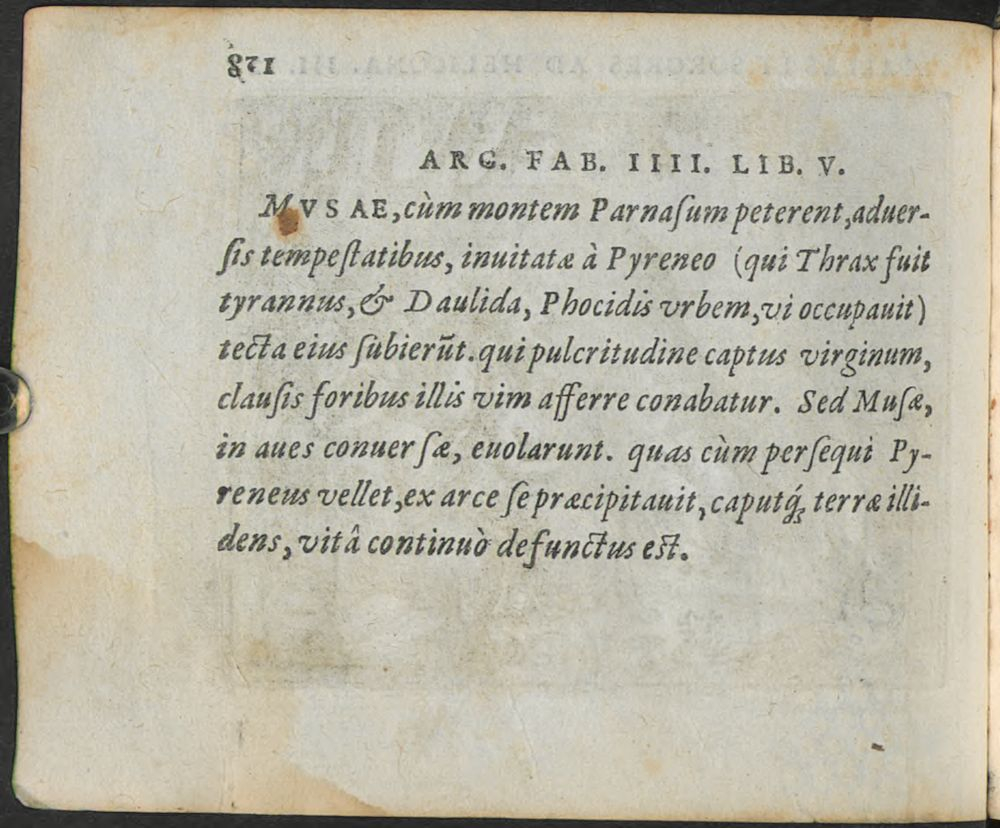 128
ARG. FAB. IIII. LIB. V.
MVSAE, cùm montem Parnaſum peterent, aduer-
ſis tempeſtatibus, inuitatæ à Pyreneo (qui Thrax fuit
tyrannus, & Daulida, Phocidis vrbem, vi occupauit)
tecta eius ſubierūt. qui pulcritudine captus virginum,
clauſis foribus illis vim afferre conabatur. Sed Muſæ,
in aues conuerſæ, euolarunt. quas cùm perſequi Py-
reneus vellet, ex arce ſe præcipitauit, caputq́; terræ illi-
dens, vitâ continuò defunctus eſt.